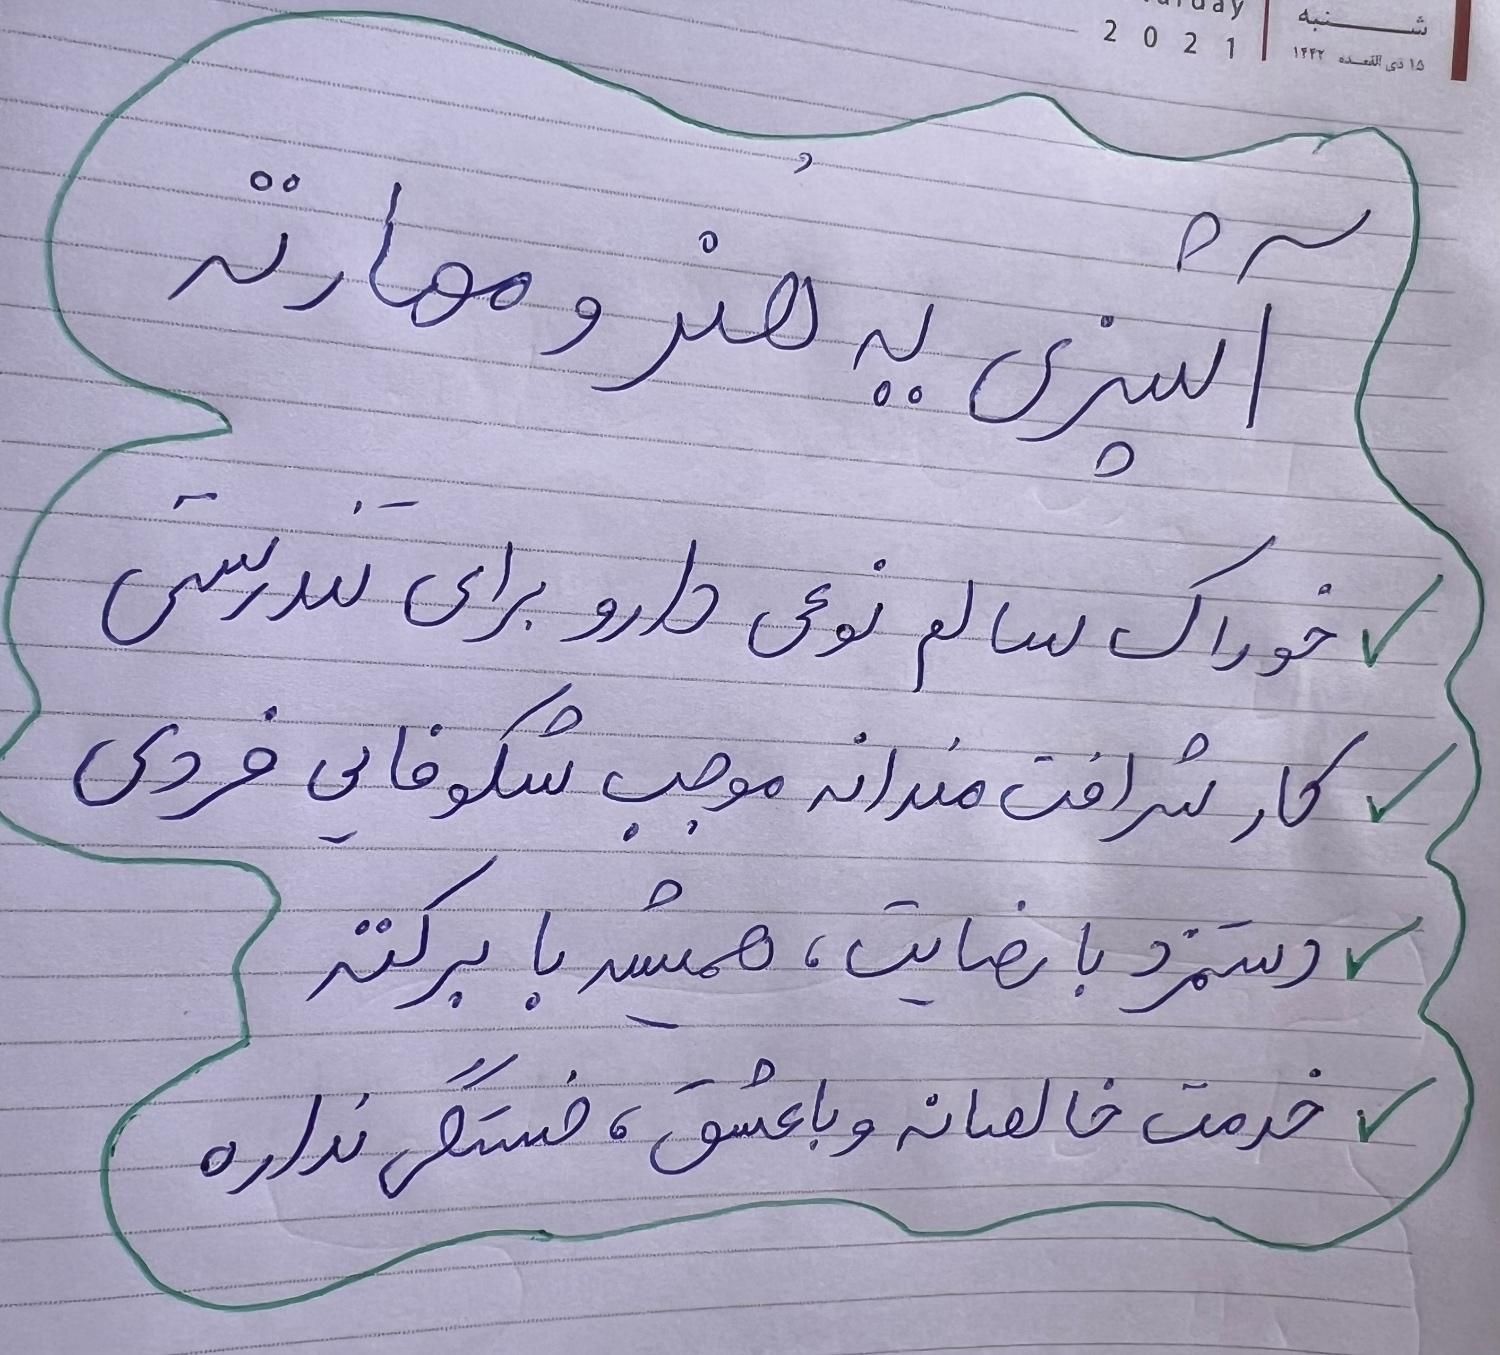 2021
شنبه
۱۵ ذی القعده ۱۴۴۲
آشپزی یه هُنر و مهارته
خوراک سالم نوعی دارو برای تندرستی
کار شرافت مندانه موجب شکوفایی فردی
دستمزد با رضایت، همیشه با برکته
خدمت خالصانه و با عشق، خستگی نداره